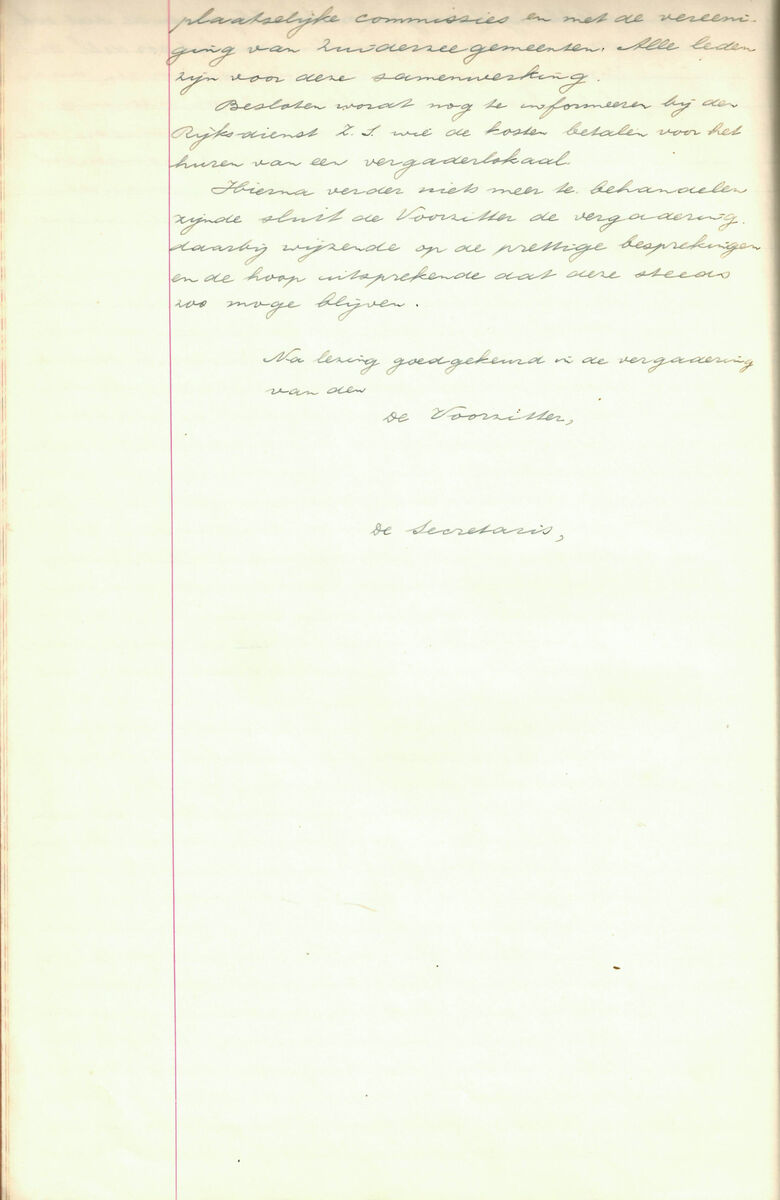 plaatselijke commissies en met de vereeni-
ging van Zuiderzeegemeenten. Alle leden
zijn voor deze samenwerking.
Besloten wordt nog te informeeren bij den
Rijksdienst Z.S. wie de kosten betalen voor het
huren van een vergaderlokaal.
Hierna verder niets meer te behandelen
zijnde sluit de Voorzitter de vergadering.
daarbij wijzende op de prettige besprekingen
en de hoop uitsprekende dat deze steeds
zoo moge blijven.
Na lezing goedgekeurd in de vergadering
van den
De Voorzitter,
De Secretaris,